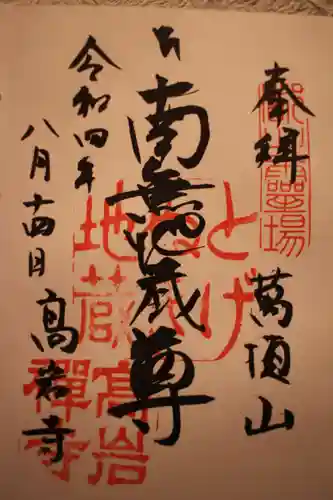 奉拝
萬頂山
南無地蔵尊
令和四年
八月十四日
高岩寺
御府内霊場
とげぬき
地蔵
高岩
禅寺